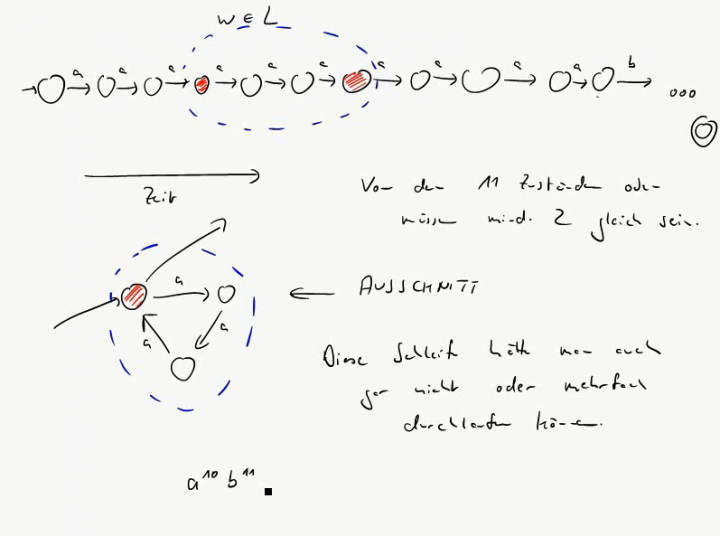 w ∈ L
a a a a a a a a a a b
...
Zeit
Von den 11 Zuständen oben
müssen mind. 2 gleich sein.
a
a
a
AUSSCHNITT
Diese Schleife hätte man auch
gar nicht oder mehrfach
durchlaufen können.
a¹⁰ b¹¹